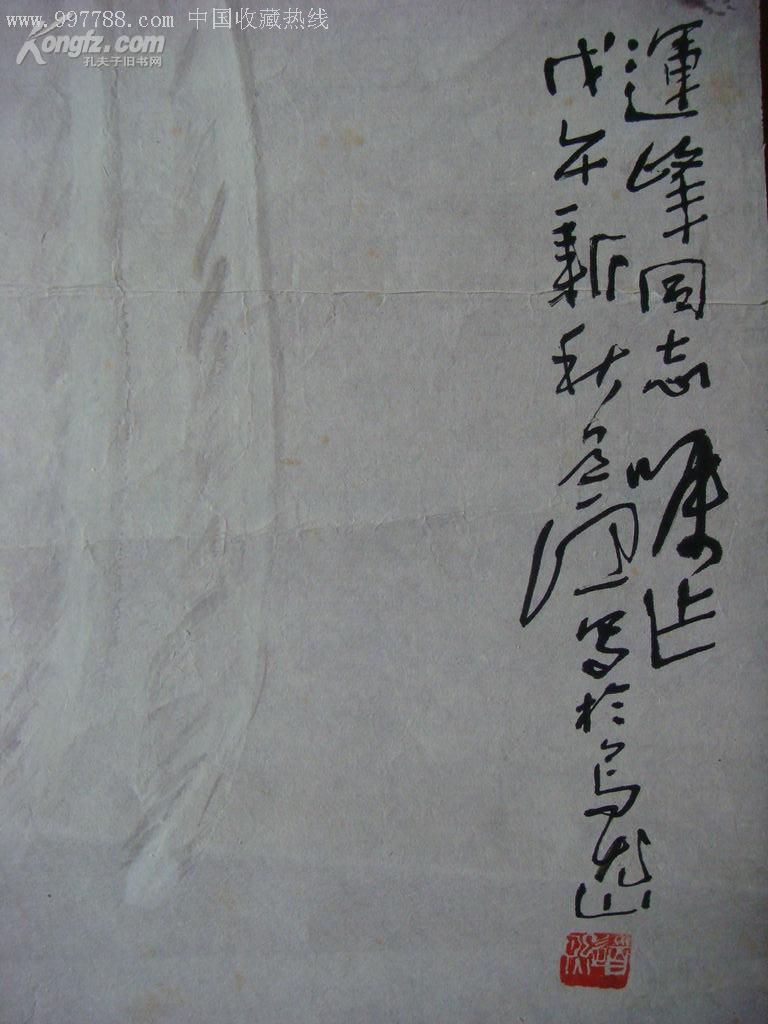 www.997788.com 中国收藏热线
Kongfz.com
孔夫子旧书网
運峰同志嘱
戊午新秋写於乌龙山